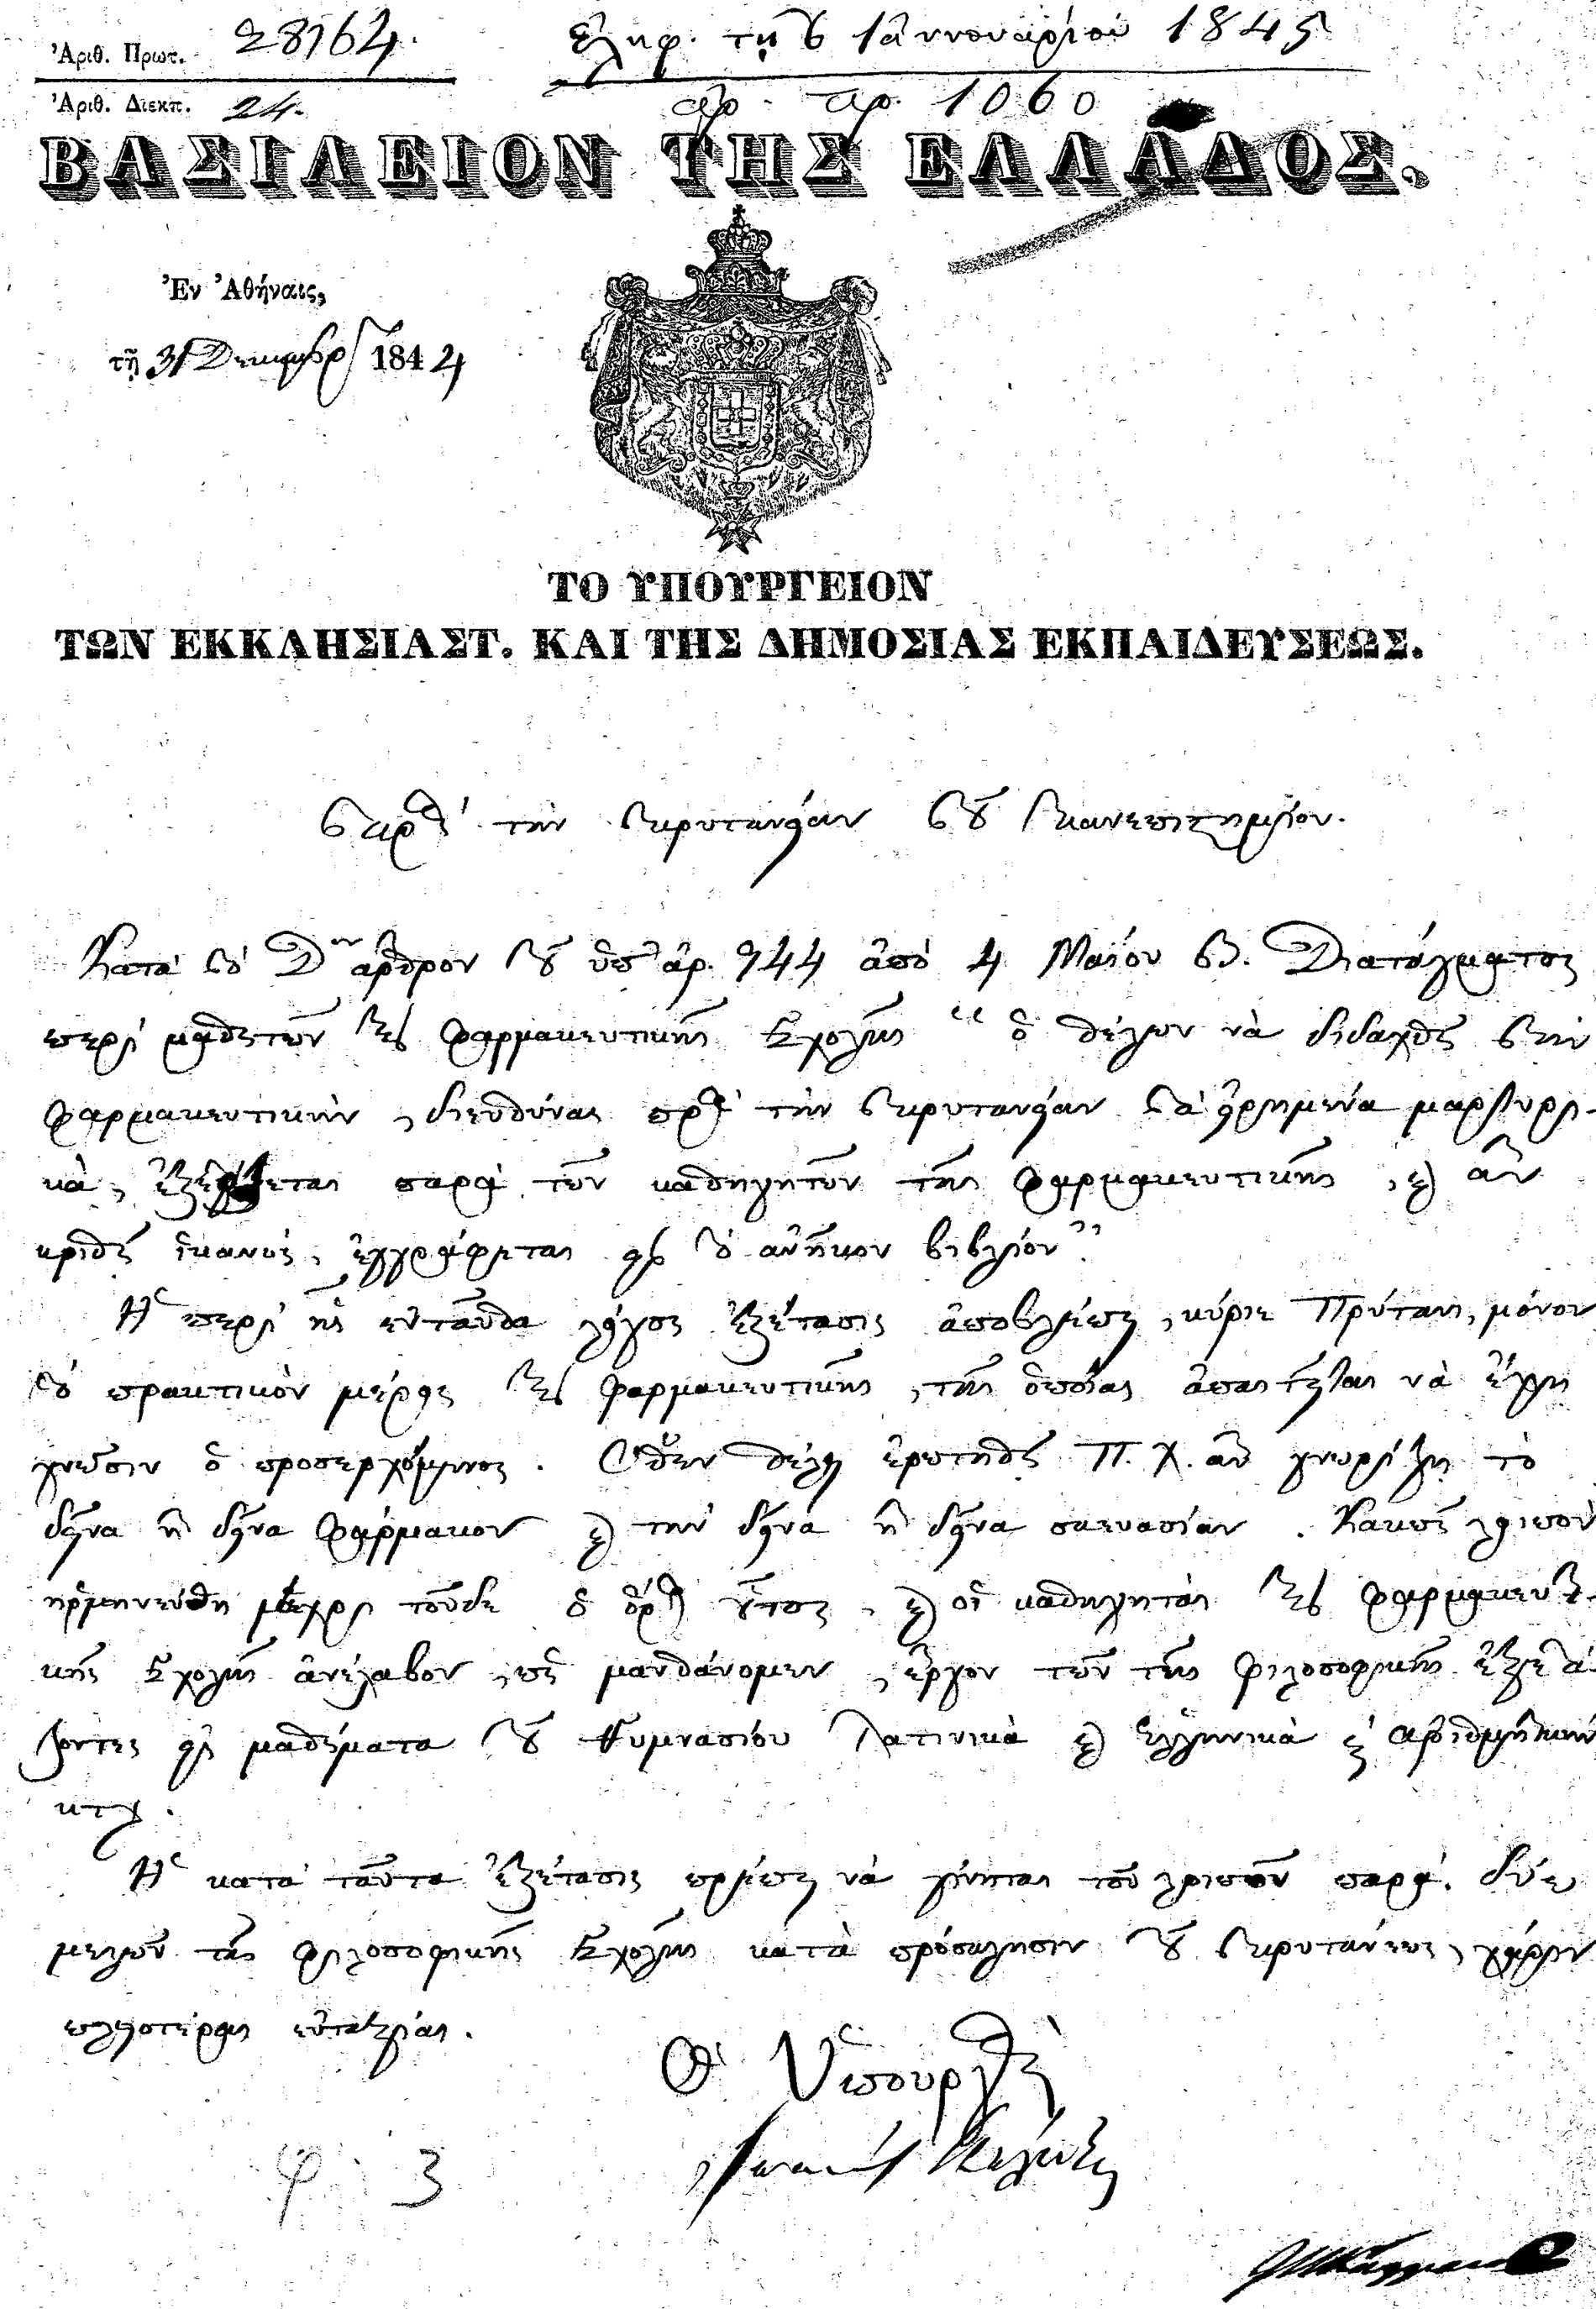 Ἀριθ. Πρωτ. 28764.
Ἐλήφ. τῇ 6 Ἰαννουαρίου 1845
Ἀριθ. Διεκπ. 24.
ἀρ. πρ. 1060
ΒΑΣΙΛΕΙΟΝ ΤΗΣ ΕΛΛΑΔΟΣ.
Ἐν Ἀθήναις,
τῇ 31 Δεκεμβρ 1844
ΤΟ ΥΠΟΥΡΓΕΙΟΝ
ΤΩΝ ΕΚΚΛΗΣΙΑΣΤ. ΚΑΙ ΤΗΣ ΔΗΜΟΣΙΑΣ ΕΚΠΑΙΔΕΥΣΕΩΣ.
Πρὸς τὴν Πρυτανείαν τοῦ Πανεπιστημίου.
Κατὰ τὸ ἄρθρον τοῦ ὑπ' ἀρ. 944 ἀπὸ 4 Μαΐου Β. Διατάγματος
περὶ μαθητῶν τῆς Φαρμακευτικῆς Σχολῆς “ὁ θέλων νὰ διδαχθῇ τὴν
Φαρμακευτικὴν, διευθύνας πρὸς τὴν Πρυτανείαν τὰ εἰρημένα μαρτυρι-
κὰ, ἐξετάζεται παρὰ τῶν καθηγητῶν τῆς Φαρμακευτικῆς, καὶ ἂν
κριθῇ ἱκανὸς, ἐγγράφεται εἰς τὸ ἀνῆκον βιβλίον”.
Ἡ περὶ ἧς ἐνταῦθα λόγος ἐξέτασις ἀποβλέπει, κύριε Πρύτανι, μόνον
τὸ πρακτικὸν μέρος τῆς φαρμακευτικῆς, τῆς ὁποίας ἀπαιτεῖται νὰ ἔχῃ
γνῶσιν ὁ προσερχόμενος. Ὅθεν θέλει ἐρωτηθῆ Π. Χ. ἂν γνωρίζῃ τὸ
δεῖνα ἢ δεῖνα φάρμακον καὶ τὴν δεῖνα ἢ δεῖνα σκευασίαν. Κακῶς λοιπὸν
ἡρμηνεύθη μέχρι τοῦδε ὁ ὅρος οὗτος, καὶ οἱ καθηγηταὶ τῆς Φαρμακευτι-
κῆς Σχολῆς ἀνέλαβον, ὡς μανθάνομεν, ἔργον τῶν τῆς Φιλοσοφικῆς ἐξετά-
ζοντες εἰς μαθήματα τοῦ Γυμνασίου Λατινικὰ καὶ Ἑλληνικὰ καὶ Ἀριθμητικὴν
κτλ.
Ἡ κατὰ ταῦτα ἐξέτασις πρέπει νὰ γίνηται τοῦ λοιποῦ παρὰ δύο
μελῶν τῆς Φιλοσοφικῆς Σχολῆς κατὰ πρόσκλησιν τοῦ Πρυτάνεως, χάριν
πλειοτέρας εὐταξίας.
Ὁ Ὑπουργὸς
Ἰωάννης Κωλέττης
φ. 3